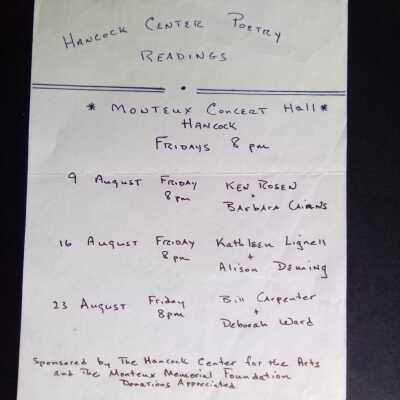 Hancock Center Poetry
Readings
* Monteux Concert Hall *
Hancock
Fridays 8 pm
9 August Friday Ken Rosen
8 pm +
Barbara Cairns
16 August Friday Kathleen Lignell
8 pm +
Alison Deming
23 August Friday Bill Carpenter
8 pm +
Deborah Ward
Sponsored by The Hancock Center for the Arts
and The Monteux Memorial Foundation
Donations Appreciated